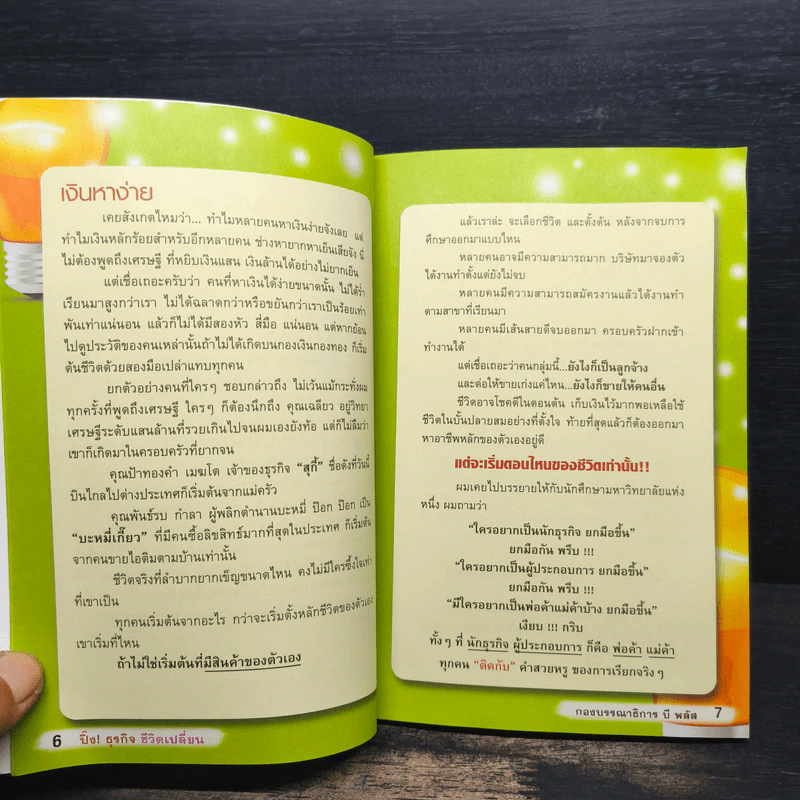 เงินหาง่าย
เคยสังเกตไหมว่า... ทำไมหลายคนหาเงินง่ายจังเลย แต่
ทำไมเงินหลักร้อยสำหรับอีกหลายคน ช่างหายากหาเย็นเสียจัง นี่
ไม่ต้องพูดถึงเศรษฐี ที่หยิบเงินแสน เงินล้านได้อย่างไม่ยากเย็น
แต่เชื่อเถอะครับว่า คนที่หาเงินได้ง่ายขนาดนั้น ไม่ได้ร่ำ
เรียนมาสูงกว่าเรา ไม่ได้ฉลาดกว่าหรือขยันกว่าเราเป็นร้อยเท่า
พันเท่าแน่นอน แล้วก็ไม่ได้มีสองหัว สี่มือ แน่นอน แต่หากย้อน
ไปดูประวัติของคนเหล่านั้นถ้าไม่ได้เกิดบนกองเงินกองทอง ก็เริ่ม
ต้นชีวิตด้วยสองมือเปล่าแทบทุกคน
ยกตัวอย่างคนที่ใครๆ ชอบกล่าวถึง ไม่เว้นแม้กระทั่งผม
ทุกครั้งที่พูดถึงเศรษฐี ใครๆ ก็ต้องนึกถึง คุณเฉลียว อยู่วิทยา
เศรษฐีระดับแสนล้านที่รวยเกินไปจนผมเองยังท้อ แต่ก็ไม่ลืมว่า
เขาก็เกิดมาในครอบครัวที่ยากจน
คุณป้าทองคำ เมฆโต เจ้าของธุรกิจ “สุกี้” ชื่อดังที่วันนี้
บินไกลไปต่างประเทศก็เริ่มต้นจากแม่ครัว
คุณพันธ์รบ กำลา ผู้พลิกตำนานบะหมี่ ป๊อก ป๊อก เป็น
“บะหมี่เกี๊ยว” ที่มีคนซื้อลิขสิทธ์มากที่สุดในประเทศ ก็เริ่มต้น
จากคนขายไอติมตามบ้านเท่านั้น
ชีวิตจริงที่ลำบากยากเข็ญขนาดไหน คงไม่มีใครซึ้งใจเท่า
ที่เขาเป็น
ทุกคนเริ่มต้นจากอะไร กว่าจะเริ่มตั้งหลักชีวิตของตัวเอง
เขาเริ่มที่ไหน
ถ้าไม่ใช่เริ่มต้นที่มีสินค้าของตัวเอง
6 ปิ๊ง! ธุรกิจ ชีวิตเปลี่ยน
แล้วเราล่ะ จะเลือกชีวิต และตั้งต้น หลังจากจบการ
ศึกษาออกมาแบบไหน
หลายคนอาจมีความสามารถมาก บริษัทมาจองตัว
ได้งานทำตั้งแต่ยังไม่จบ
หลายคนมีความสามารถสมัครงานแล้วได้งานทำ
ตามสาขาที่เรียนมา
หลายคนมีเส้นสายดีจบออกมา ครอบครัวฝากเข้า
ทำงานได้
แต่เชื่อเถอะว่าคนกลุ่มนี้...ยังไงก็เป็นลูกจ้าง
และต่อให้ขายเก่งแค่ไหน...ยังไงก็ขายให้คนอื่น
ชีวิตอาจโชคดีในตอนต้น เก็บเงินไว้มากพอเหลือใช้
ชีวิตในบั้นปลายสมอย่างที่ตั้งใจ ท้ายที่สุดแล้วก็ต้องออกมา
หาอาชีพหลักของตัวเองอยู่ดี
แต่จะเริ่มตอนไหนของชีวิตเท่านั้น!!
ผมเคยไปบรรยายให้กับนักศึกษามหาวิทยาลัยแห่ง
หนึ่ง ผมถามว่า
“ใครอยากเป็นนักธุรกิจ ยกมือขึ้น”
ยกมือกัน พรึบ !!!
“ใครอยากเป็นผู้ประกอบการ ยกมือขึ้น”
ยกมือกัน พรึบ !!!
“มีใครอยากเป็นพ่อค้าแม่ค้าบ้าง ยกมือขึ้น”
เงียบ !!! กริบ
ทั้งๆ ที่ นักธุรกิจ ผู้ประกอบการ ก็คือ พ่อค้า แม่ค้า
ทุกคน “ติดกับ” คำสวยหรู ของการเรียกจริงๆ
กองบรรณาธิการ บี พลัส 7